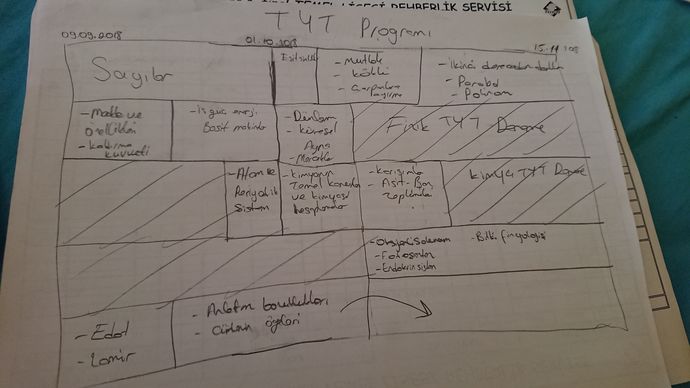 LİSESİ REHBERLİK SERVİSİ
TYT Programı
09.09.2018
01.10.2018
15.11.2018
Sayılar
Eşitsizlik
- Mutlak
- Köklü
- Çarpanlara
ayırma
- İkinci dereceden
- Parabol
- Polinom
- Madde ve
özellikleri
- kaldırma
kuvveti
- İş güç enerji
Basit makine
- Düzlem
- küresel
Ayna
- Mercekler
Fizik TYT Deneme
- Atom ve
Periyodik
Sistem
- Kimyanın
Temel kanunları
ve kimyasal
hesaplamalar
- Karışımlar
- Asit-Baz
Kimya TYT Deneme
- Fotosentez
- Endokrin sistem
- Bitki fizyolojisi
- Edat
- Anlatım bozuklukları
- Cümlenin öğeleri